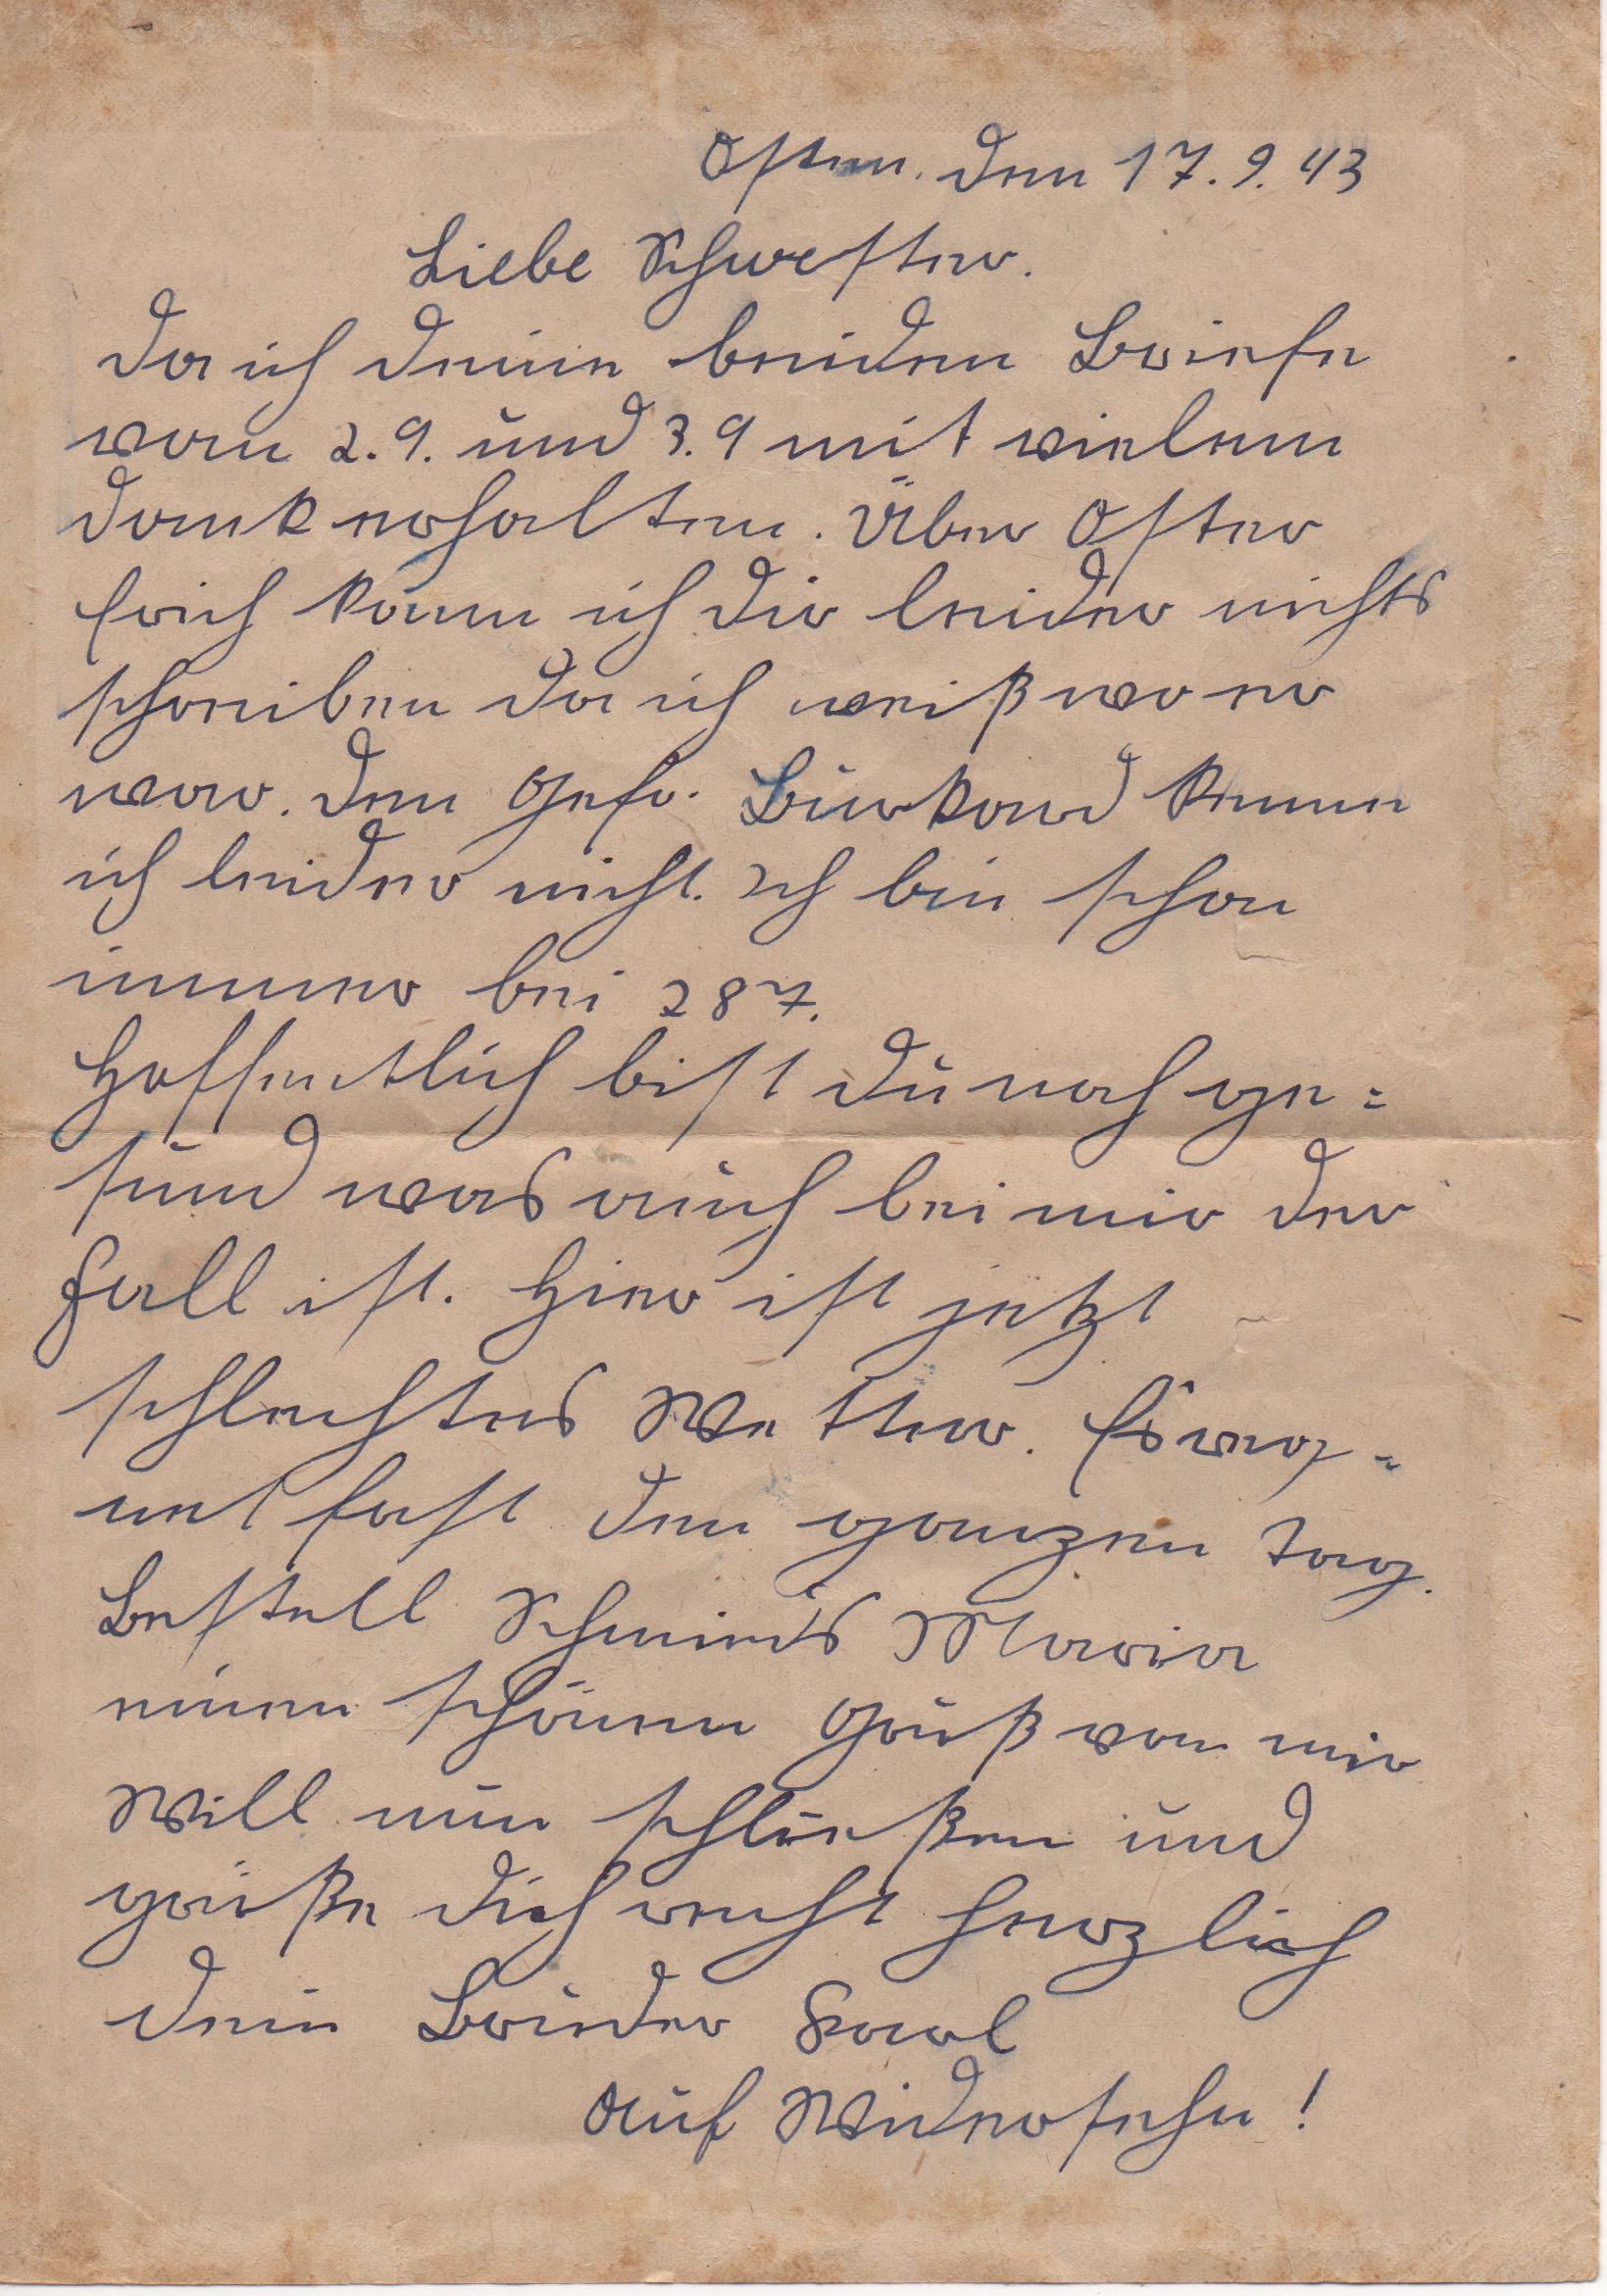 Osten. den 17.9.43
Liebe Schwester.
Da ich deine beiden Briefe
vom 2.9. und 3.9 mit vielem
dank erhalten. Über Oster
Erich kann ich dir leider nichts
schreiben da ich weiß wo er
war. den Gefr. Burkard kenne
ich leider nicht. Ich bin schon
immer bei 287.
Hoffentlich bist du noch ge=
sund was auch bei mir der
Fall ist. Hier ist jetzt
schlechtes Wetter. Es reg=
net fast den ganzen Tag.
Bestell Schmids Maria
einen schönen Gruß von mir
Will nun schließen und
grüße dich recht herzlich
dein Bruder Karl
Auf Widersehn!